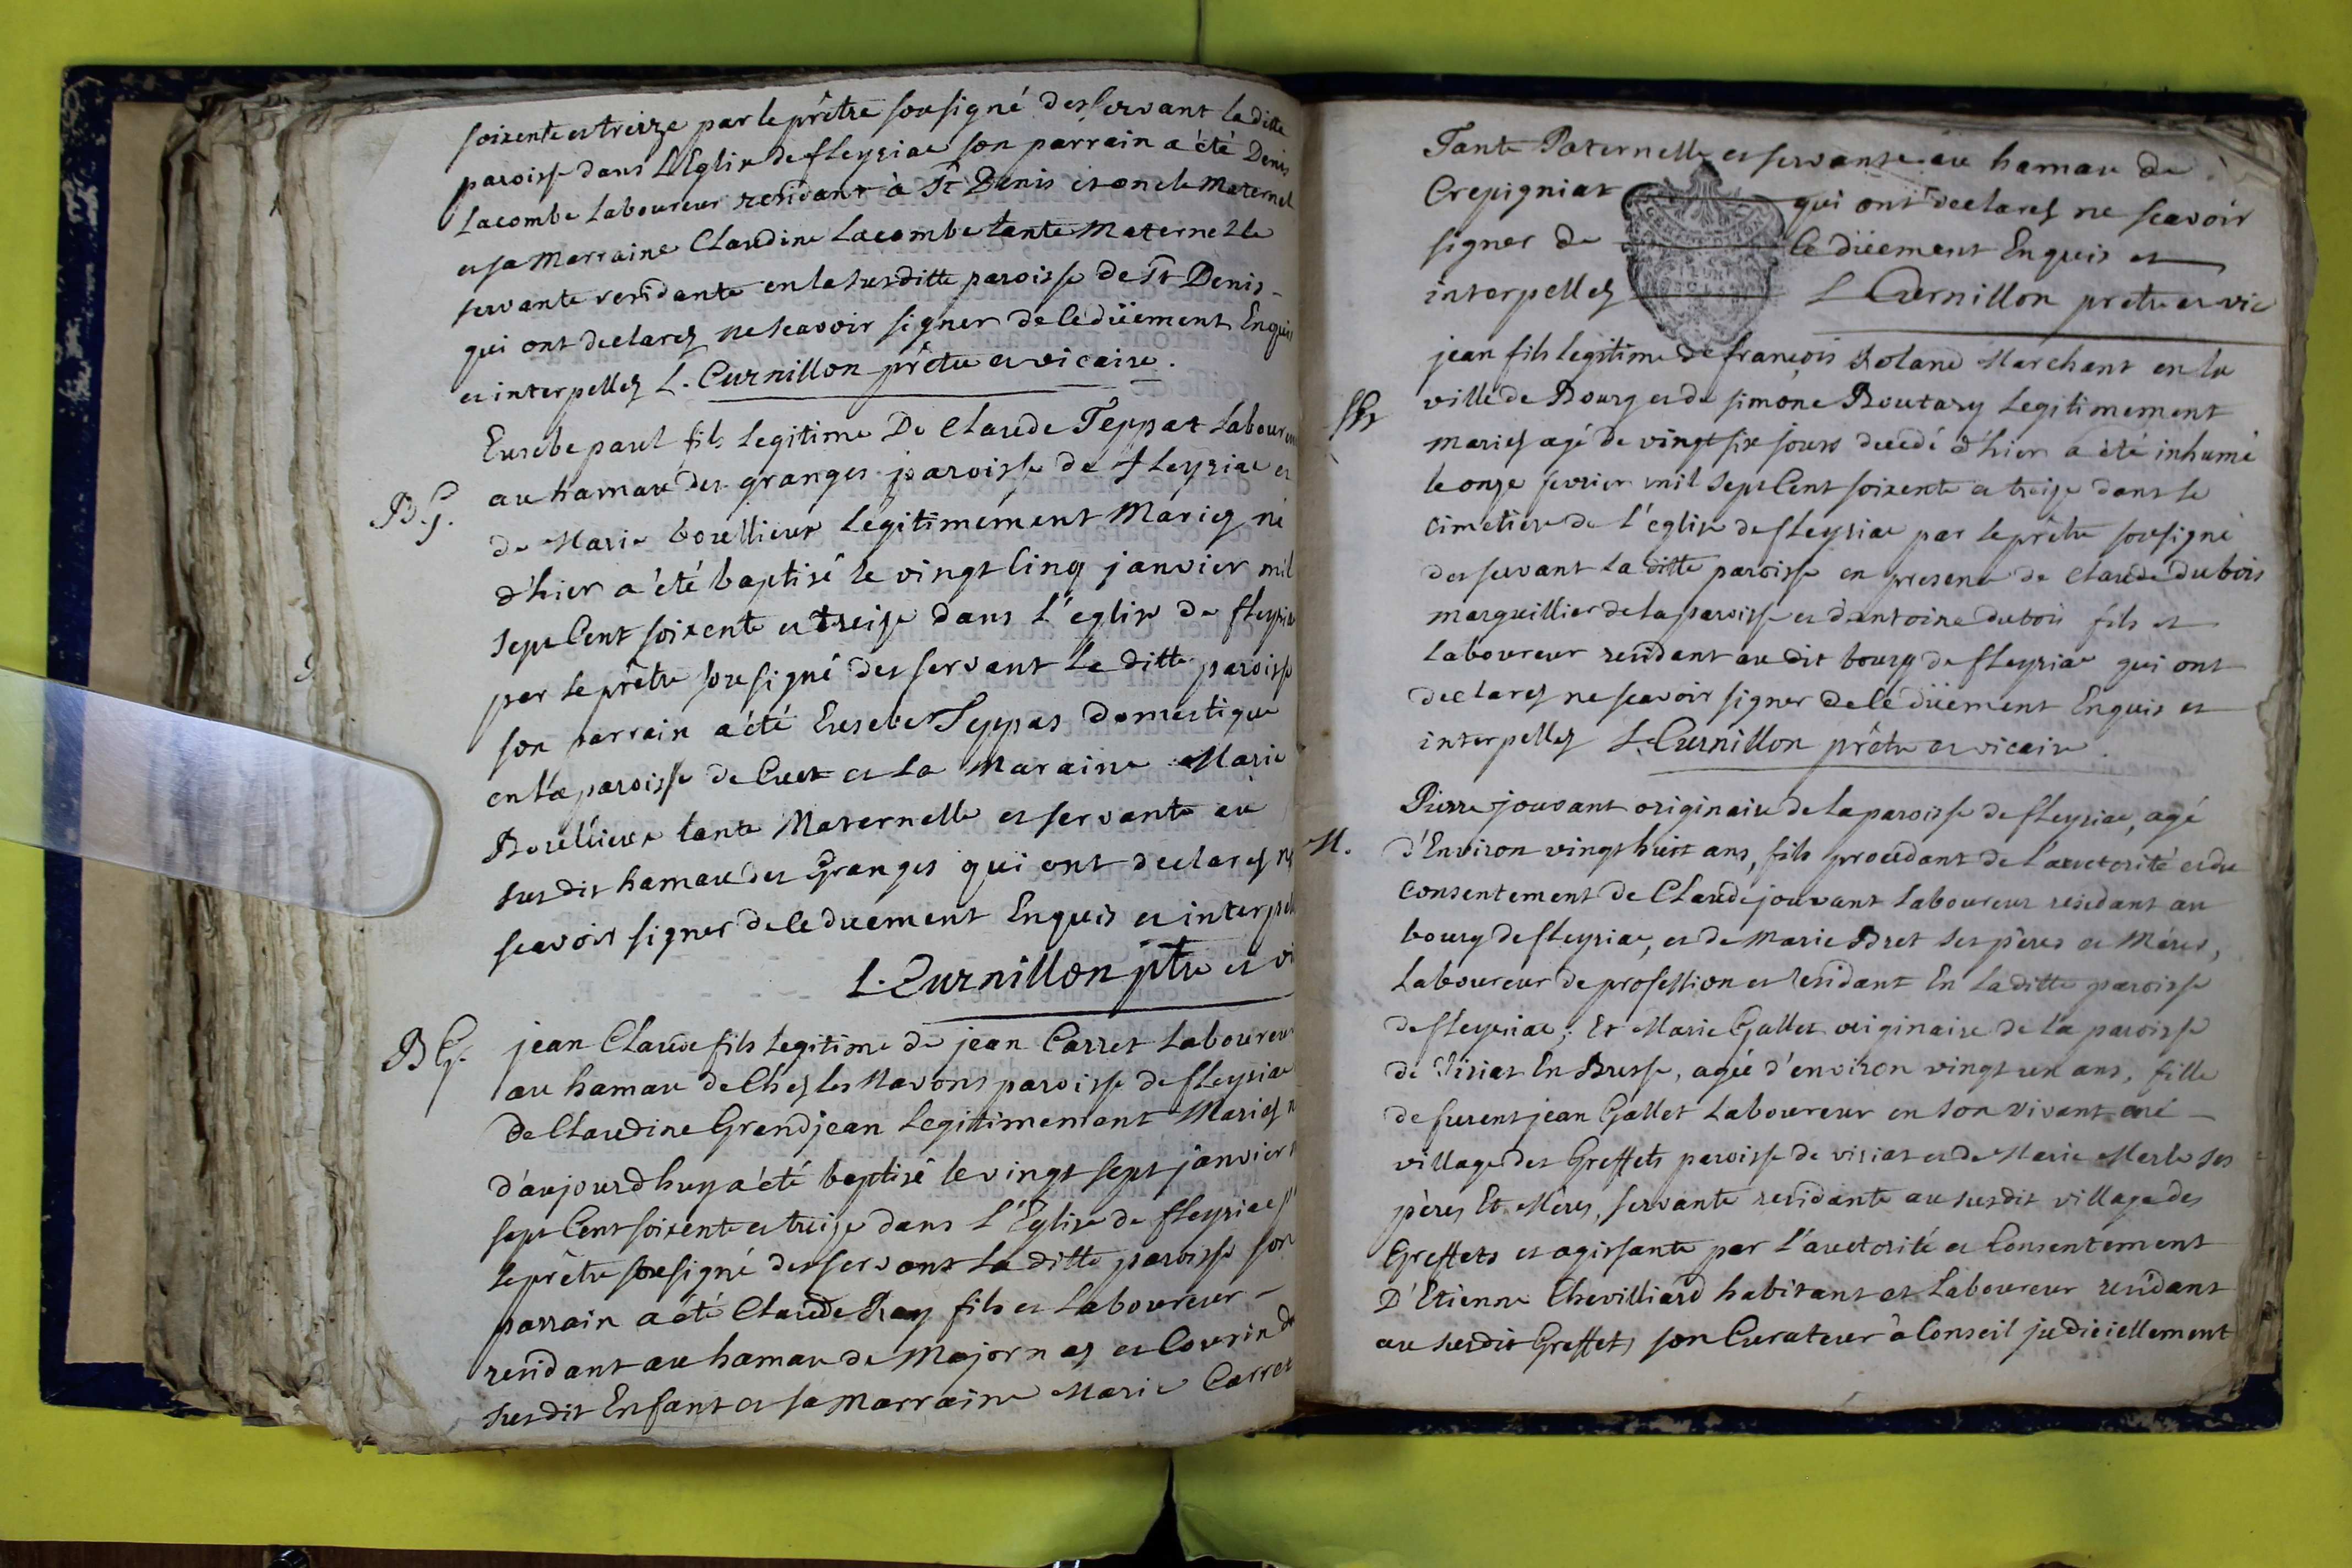 soixente et treize par le prêtre sousigné desservant la ditte
paroisse dans L'Eglise de fleyriac son parrain a été Denis
Lacombe Laboureur residant à St Denis et oncle Maternel
et sa Marraine Claudine Lacombe tante Maternelle
servante residante en la susditte paroisse de St Denis -
qui ont declarez ne scavoir signer de ce düement Enquis
et interpellez L. Curnillon prêtre et vicaire.
B. G.
Eusebe paul fils legitime De Claude Teppat Laboureur
au hamau des granges paroisse de fleyriac et
de Marie bouillieux Legitimement Mariez né
d'hier a été baptisé le vingt Cinq janvier mil
sept Cent soixente et treize dans L'eglise de fleyria
par le prêtre sousigné desservant la ditte paroisse
son parrain a été Eusebe Teppas domestique
en la paroisse de Cuet et La Maraine Marie
Bouillieux tante Maternelle et servante au
susdit hamau des Granges qui ont declarez ne
scavoir signer de ce düement Enquis et interpel
L. Curnillon ptre et vi
B G.
jean Claude fils legitime de jean Carret Laboureur
au hamau de Chez les Mavons paroisse de fleyriac
de Claudine Grandjean Legitimement Mariez n
d'aujourdhuy a été baptisé le vingt sept janvier
sept Cent soixente et treize dans L'Eglise de fleyriac p
le prêtre sousigné desservant La ditte paroisse son
parrain a été Claude Ray fils et Laboureur -
residant au hamau de Majornas et Cousin du
susdit Enfant et sa Marraine Marie Carret
Tante Paternelle et servante au hamau de
Crepigniat qui ont declarez ne scavoir
signer de ce düement Enquis et
interpellez L Curnillon pretre et vic
jean fils legitime de françois Roland Marchant en la
ville de Bourg et de simone Boutary Legitimement
mariez agé de vingt six jours decedé d'hier a été inhumé
le onze fevrier mil sept Cent soixente et treize dans le
cimetiere de L'eglise de fleyriac par le prêtre sousigné
desservant la ditte paroisse en presence de claude dubois
marguillier de la paroisse et d'antoine dubois fils et
Laboureur residant au dit bourg de fleyriac qui ont
declarez ne scavoir signer de ce düement Enquis et
interpellez L. Curnillon prêtre et vicaire.
M.
Pierre jouvant originaire de la paroisse de fleyriac, agé
d'Environ vingt huit ans, fils procedant de L'auctorité et du
Consentement de Claude jouvant Laboureur residant au
bourg de fleyriac, et de Marie Bret ses pères et Mères,
Laboureur de profession et residant En la ditte paroisse
de fleyriac; Et Marie Gallet originaire de la paroisse
de Viriat En Bresse, agée d'environ vingt un ans, fille
de furent jean Gallet Laboureur en son vivant au
village des Greffets paroisse de viriat et de Marie Merle ses
pères Et Mères, servante residante au susdit village des
Greffets et agissante par L'auctorité et Consentement
D'Etienne Chevilliard habitant et Laboureur residant
au susdit Greffets son Curateur à Conseil judiciellement